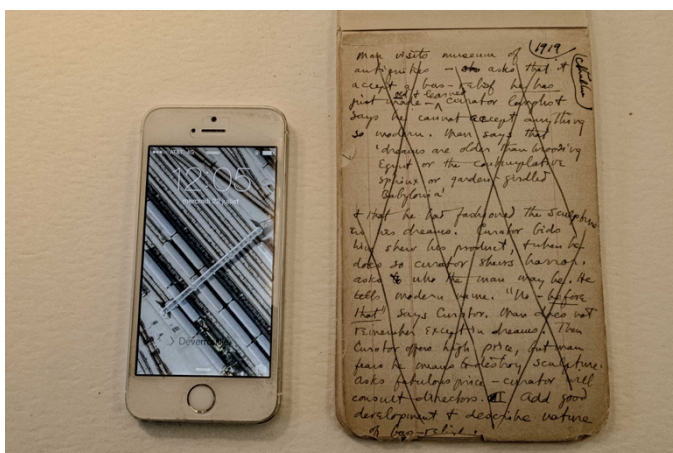 AT&T 4G
12:05
mercredi 22 juillet
> Déverrouiller
1919
Man visits museum of
antiquities — asks that it
accept a bas-relief he has
just made — old & learned curator laughs &
says he cannot accept anything
so modern. Man says that
'dreams are older than brooding
Egypt or the contemplative
sphinx or garden-girdled
Babylonia'
& that he had fashioned the sculpture
in his dreams. Curator bids
him shew his product, & when he
does so curator shews horror.
asks who the man may be. He
tells modern name. "No — before
that" says Curator. Man does not
remember except in dreams. Then
Curator offers high price, but man
fears he means to destroy sculpture.
Asks fabulous price — curator will
consult directors. Add good
development & describe nature
of bas-relief.